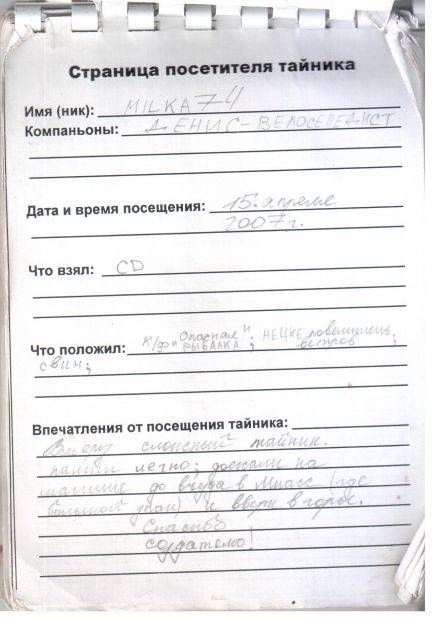 Страница посетителя тайника
Имя (ник): MILKA74
Компаньоны: ДЕНИС-ВЕЛОСЕПЕДИСТ
Дата и время посещения: 15. апреля
2007г.
Что взял: CD
Что положил: к/ф "Опасная РЫБАЛКА"; НЕЦКЕ повелитель ветров;
свин;
Впечатления от посещения тайника:
сложный тайник.
легно; доехали на
машине до в Миасс (где
большой знак) и вверх в горог.
Спасибо
создателю!